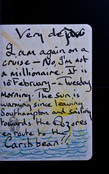 Very de
I am again on a
cruise – No, I'm not
a millionaire. It is
18 February – Tuesday
Morning. The sun is
warming since leaving
Southampton and sailing
towards the Azores
en route to the
Caribbean!